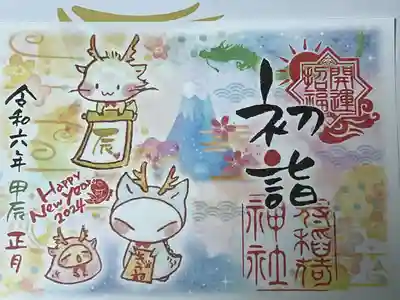 開運
招福
初詣
神社
辰
Happy
New Year
2024
令和六年 甲辰 正月